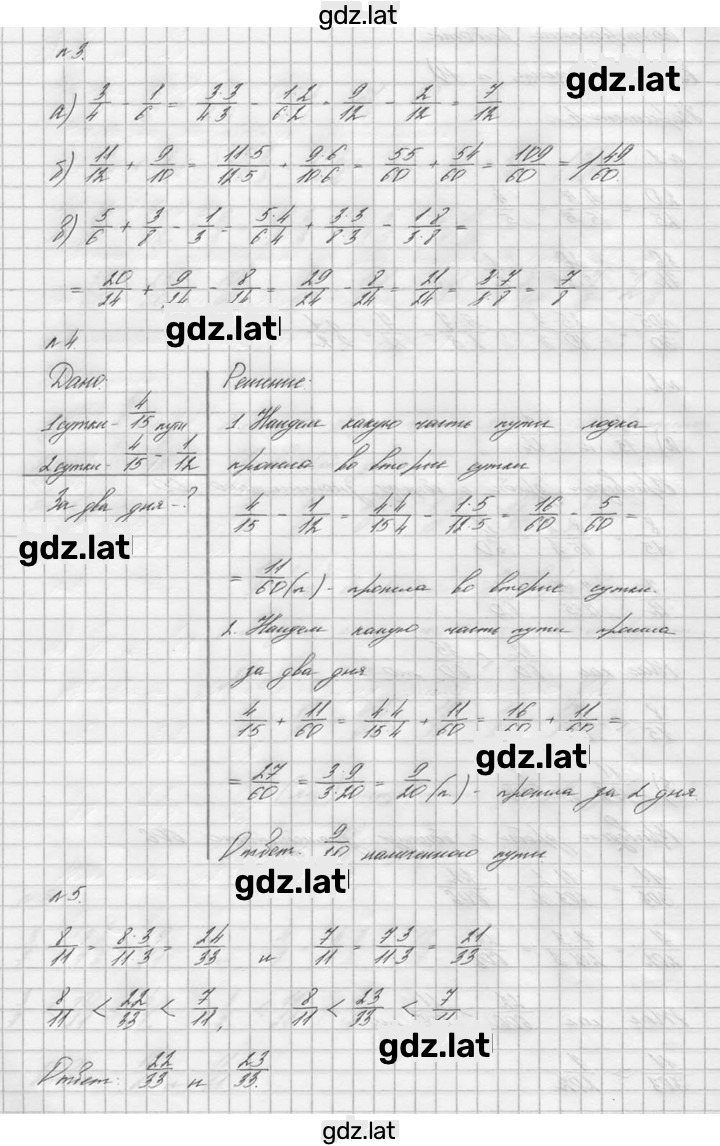 gdz.lat
№3.
gdz.lat
а) 3/4 - 1/6 = 3·3/4·3 - 1·2/6·2 = 9/12 - 2/12 = 7/12
б) 11/12 + 9/10 = 11·5/12·5 + 9·6/10·6 = 55/60 + 54/60 = 109/60 = 1 49/60.
в) 5/6 + 3/8 - 1/3 = 5·4/6·4 + 3·3/8·3 - 1·8/3·8 =
= 20/24 + 9/24 - 8/24 = 29/24 - 8/24 = 21/24 = 3·7/3·8 = 7/8
gdz.lat
№4
Дано:
1 сутки - 4/15 пути
2 сутки - 4/15 - 1/12
За два дня - ?
gdz.lat
Решение:
1. Найдем какую часть пути лодка
прошла во вторые сутки
4/15 - 1/12 = 4·4/15·4 - 1·5/12·5 = 16/60 - 5/60 =
= 11/60 (п) - прошла во вторые сутки.
2. Найдем какую часть пути прошла
за два дня
4/15 + 11/60 = 4·4/15·4 + 11/60 = 16/60 + 11/60 =
gdz.lat
= 27/60 = 3·9/3·20 = 9/20 (п) - прошла за 2 дня
Ответ: 9/20 намеченного пути
gdz.lat
№5.
8/11 = 8·3/11·3 = 24/33 и 7/11 = 7·3/11·3 = 21/33
8/11 < 22/33 < 7/11, 8/11 < 23/33 < 7/11
gdz.lat
Ответ: 22/33 и 23/33.
gdz.lat